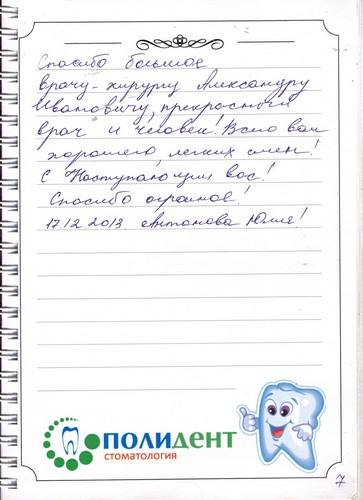 Спасибо большое
врачу-хирургу Александру
Ивановичу, прекрасный
врач и человек! Всего вам
хорошего, легких смен!
С Наступающим вас!
Спасибо огромное!
17.12.2013 Антонова Юлия!
ПОЛИДЕНТ
СТОМАТОЛОГИЯ
7